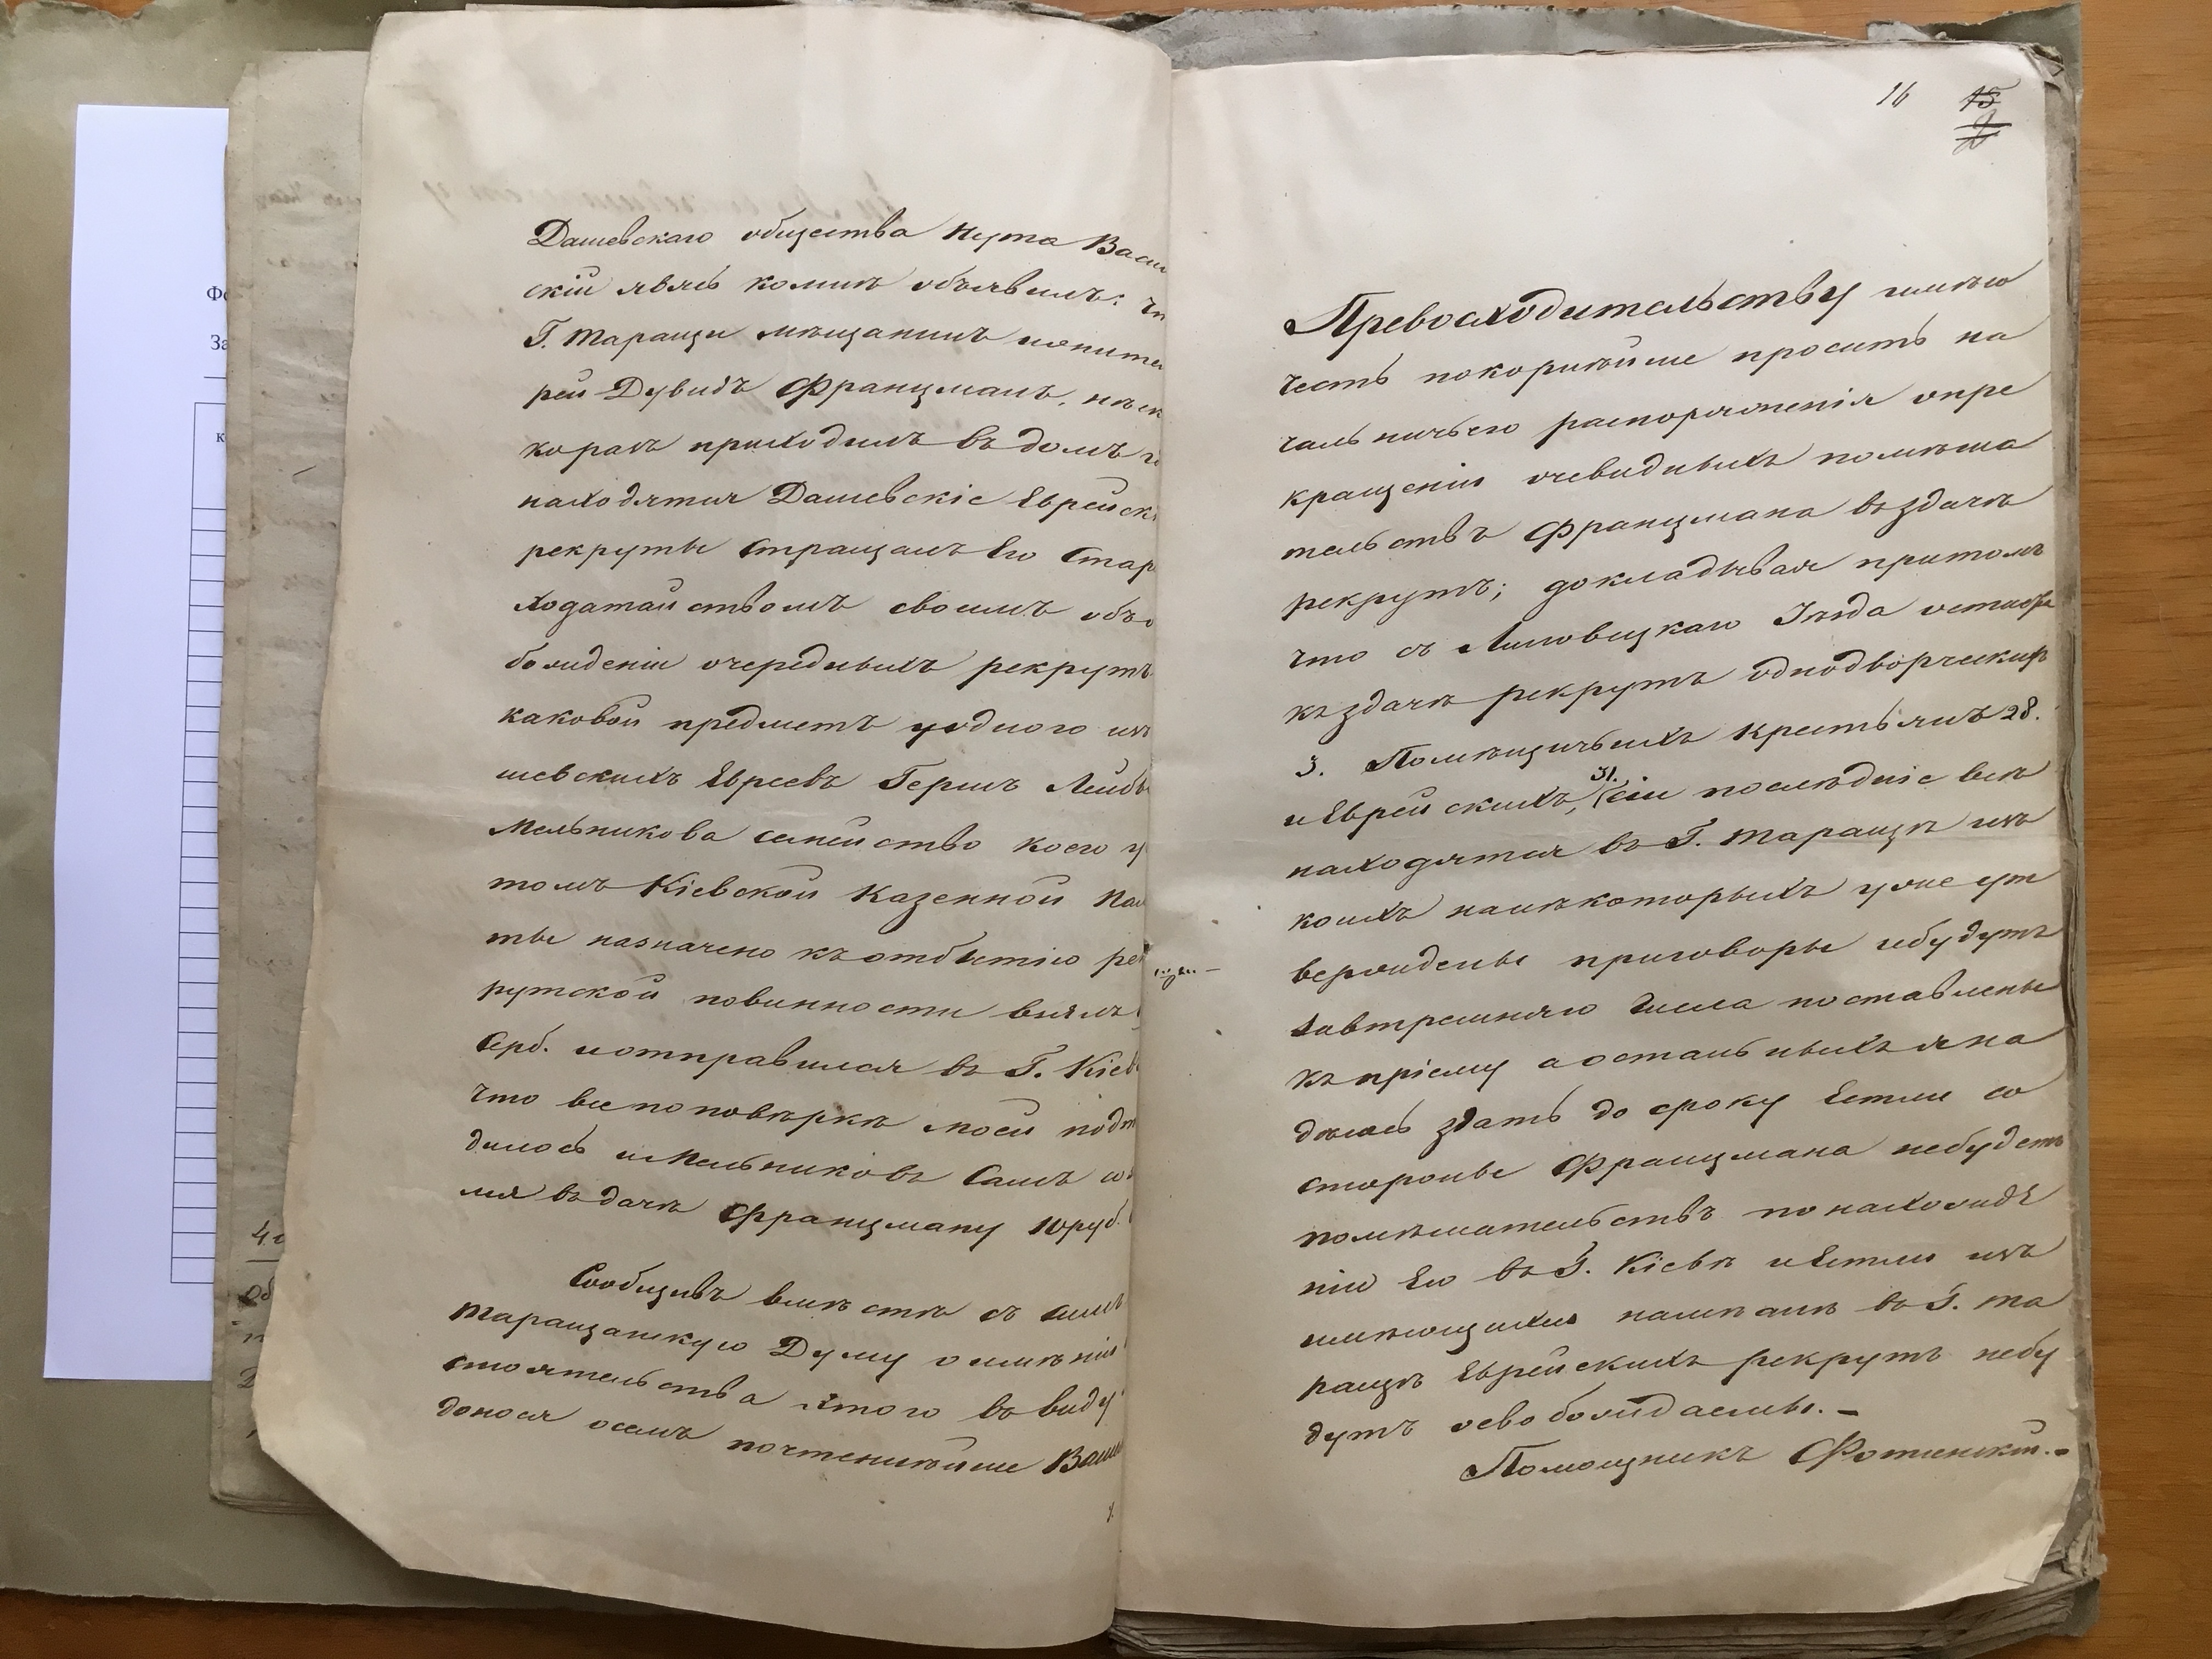 Дашевскаго общества Нута Васи
скій явясь комнѣ объявилъ: чт
Г. Таращи мѣщанинъ
рей Дувидъ Францманъ,
приходилъ въ домъ
находятся Дашевскіе Еврейск
рекруты стращалъ Его Стар
ходатайствомъ своимъ объ о
божденіи очередныхъ рекрутъ
каковой предметъ уодного изъ
шевскихъ Евреевъ Гершъ Лейбы
Мельникова семейство коего у
томъ Кіевской Казенной Пал
ты назначено къотбытію рек
рутской повинности взялъ
Серб. иотправился въ Г. Кіев
что все поповѣркѣ моей подт
дилось иМельниковъ Самъ
лся въдачѣ Францману 10 руб.
Сообщивъ вмѣстѣ съ симъ
Таращанскую Думу оимѣніи
стоятельства этого въ виду
донося осемъ почтеннѣйше Ваше
16 15
Превосходительству имѣю
честь покорнѣйше просить на
чальничьего распоряженія опре
кращеніи очевидныхъ помѣша
тельствъ Францмана въздачѣ
рекрутъ; докладывая притомъ
что съ Липовецкаго Уѣзда
къздачѣ рекрутъ однодворческихъ
3. Помѣщичьихъ крестьянъ 28.
иЕврейскихъ, 31. сіи послѣдніе всѣ
находятся въ Г. Таращѣ изъ
коихъ нанѣкоторыхъ уже ут
верждены приговоры ибудутъ
завтрешняго числа поставлены
къпріему аостальныхъ яна
дѣюсь здать до сроку Естли со
стороны Францмана небудетъ
помѣшательствъ понахожде
нію Его въ Г. Кіевѣ иЕстли изъ
имѣющихся намѣстѣ въ Г. Та
ращѣ Еврейскихъ рекрутъ небу
дутъ освобождаемы. -
Помощникъ